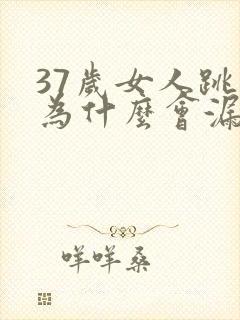 37歲女人跳
為什麼會漏
咩咩桑